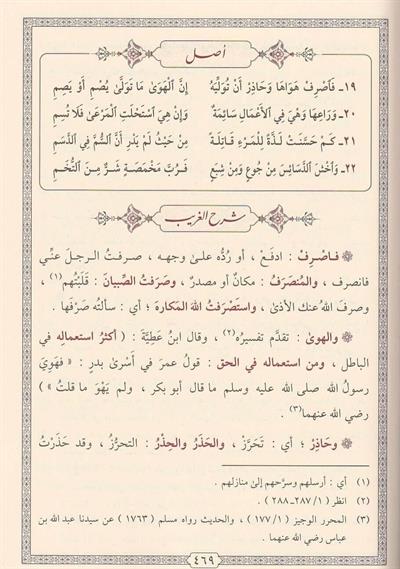 أصل
١٩ـ فَٱصْرِفْ هَوَاهَا وَحَاذِرْ أَنْ تُوَلِّيَهُ إِنَّ ٱلْهَوَىٰ مَا تَوَلَّىٰ يُصْمِ أَوْ يَصِمِ
٢٠ـ وَرَاعِهَا وَهْيَ فِي ٱلْأَعْمَالِ سَائِمَةٌ وَإِنْ هِيَ ٱسْتَحْلَتِ ٱلْمَرْعَىٰ فَلَا تُسِمِ
٢١ـ كَمْ حَسَّنَتْ لَذَّةً لِلْمَرْءِ قَاتِلَةً مِنْ حَيْثُ لَمْ يَدْرِ أَنَّ ٱلسُّمَّ فِي ٱلدَّسَمِ
٢٢ـ وَٱخْشَ ٱلدَّسَائِسَ مِنْ جُوعٍ وَمِنْ شِبَعٍ فَرُبَّ مَخْمَصَةٍ شَرٌّ مِنَ ٱلتُّخَمِ
شرح الغريب
فاصْرِفْ : ادفَعْ ، أو رُدَّه علىٰ وجهه ، صرفتُ الرجلَ عنِّي
فانصرف ، والمُنصَرَفُ : مكانٌ أو مصدرٌ ، وصَرَفتُ الصِّبيانَ : قَلَبْتُهم(١) ،
وصرفَ اللهُ عنك الأذىٰ ، واستَصْرَفتُ اللهَ المَكارهَ ؛ أي : سألتُه صَرْفَها .
والهوىٰ : تقدَّم تفسيرُه(٢) ، وقال ابنُ عَطِيَّةَ : ( أكثرُ استعمالِه في
الباطل ، ومن استعماله في الحق : قولُ عمرَ في أَسْرىٰ بدرٍ : « فهَوِيَ
رسولُ الله صلى الله عليه وسلم ما قال أبو بكر ، ولم يَهْوَ ما قلتُ » )
رضي الله عنهما(٣) .
وحَاذِرْ ؛ أي : تَحَرَّزْ ، والحَذَرُ والحِذْرُ : التحرُّزُ ، وقد حَذَرْتُ
(١) أي : أرسلهم وسرَّحهم إلىٰ منازلهم .
(٢) انظر ( ١/ ٢٨٧-٢٨٨ ) .
(٣) المحرر الوجيز ( ١/ ١٧٧ ) ، والحديث رواه مسلم ( ١٧٦٣ ) عن سيدنا عبد الله بن
عباس رضي الله عنهما .
٤٦٩